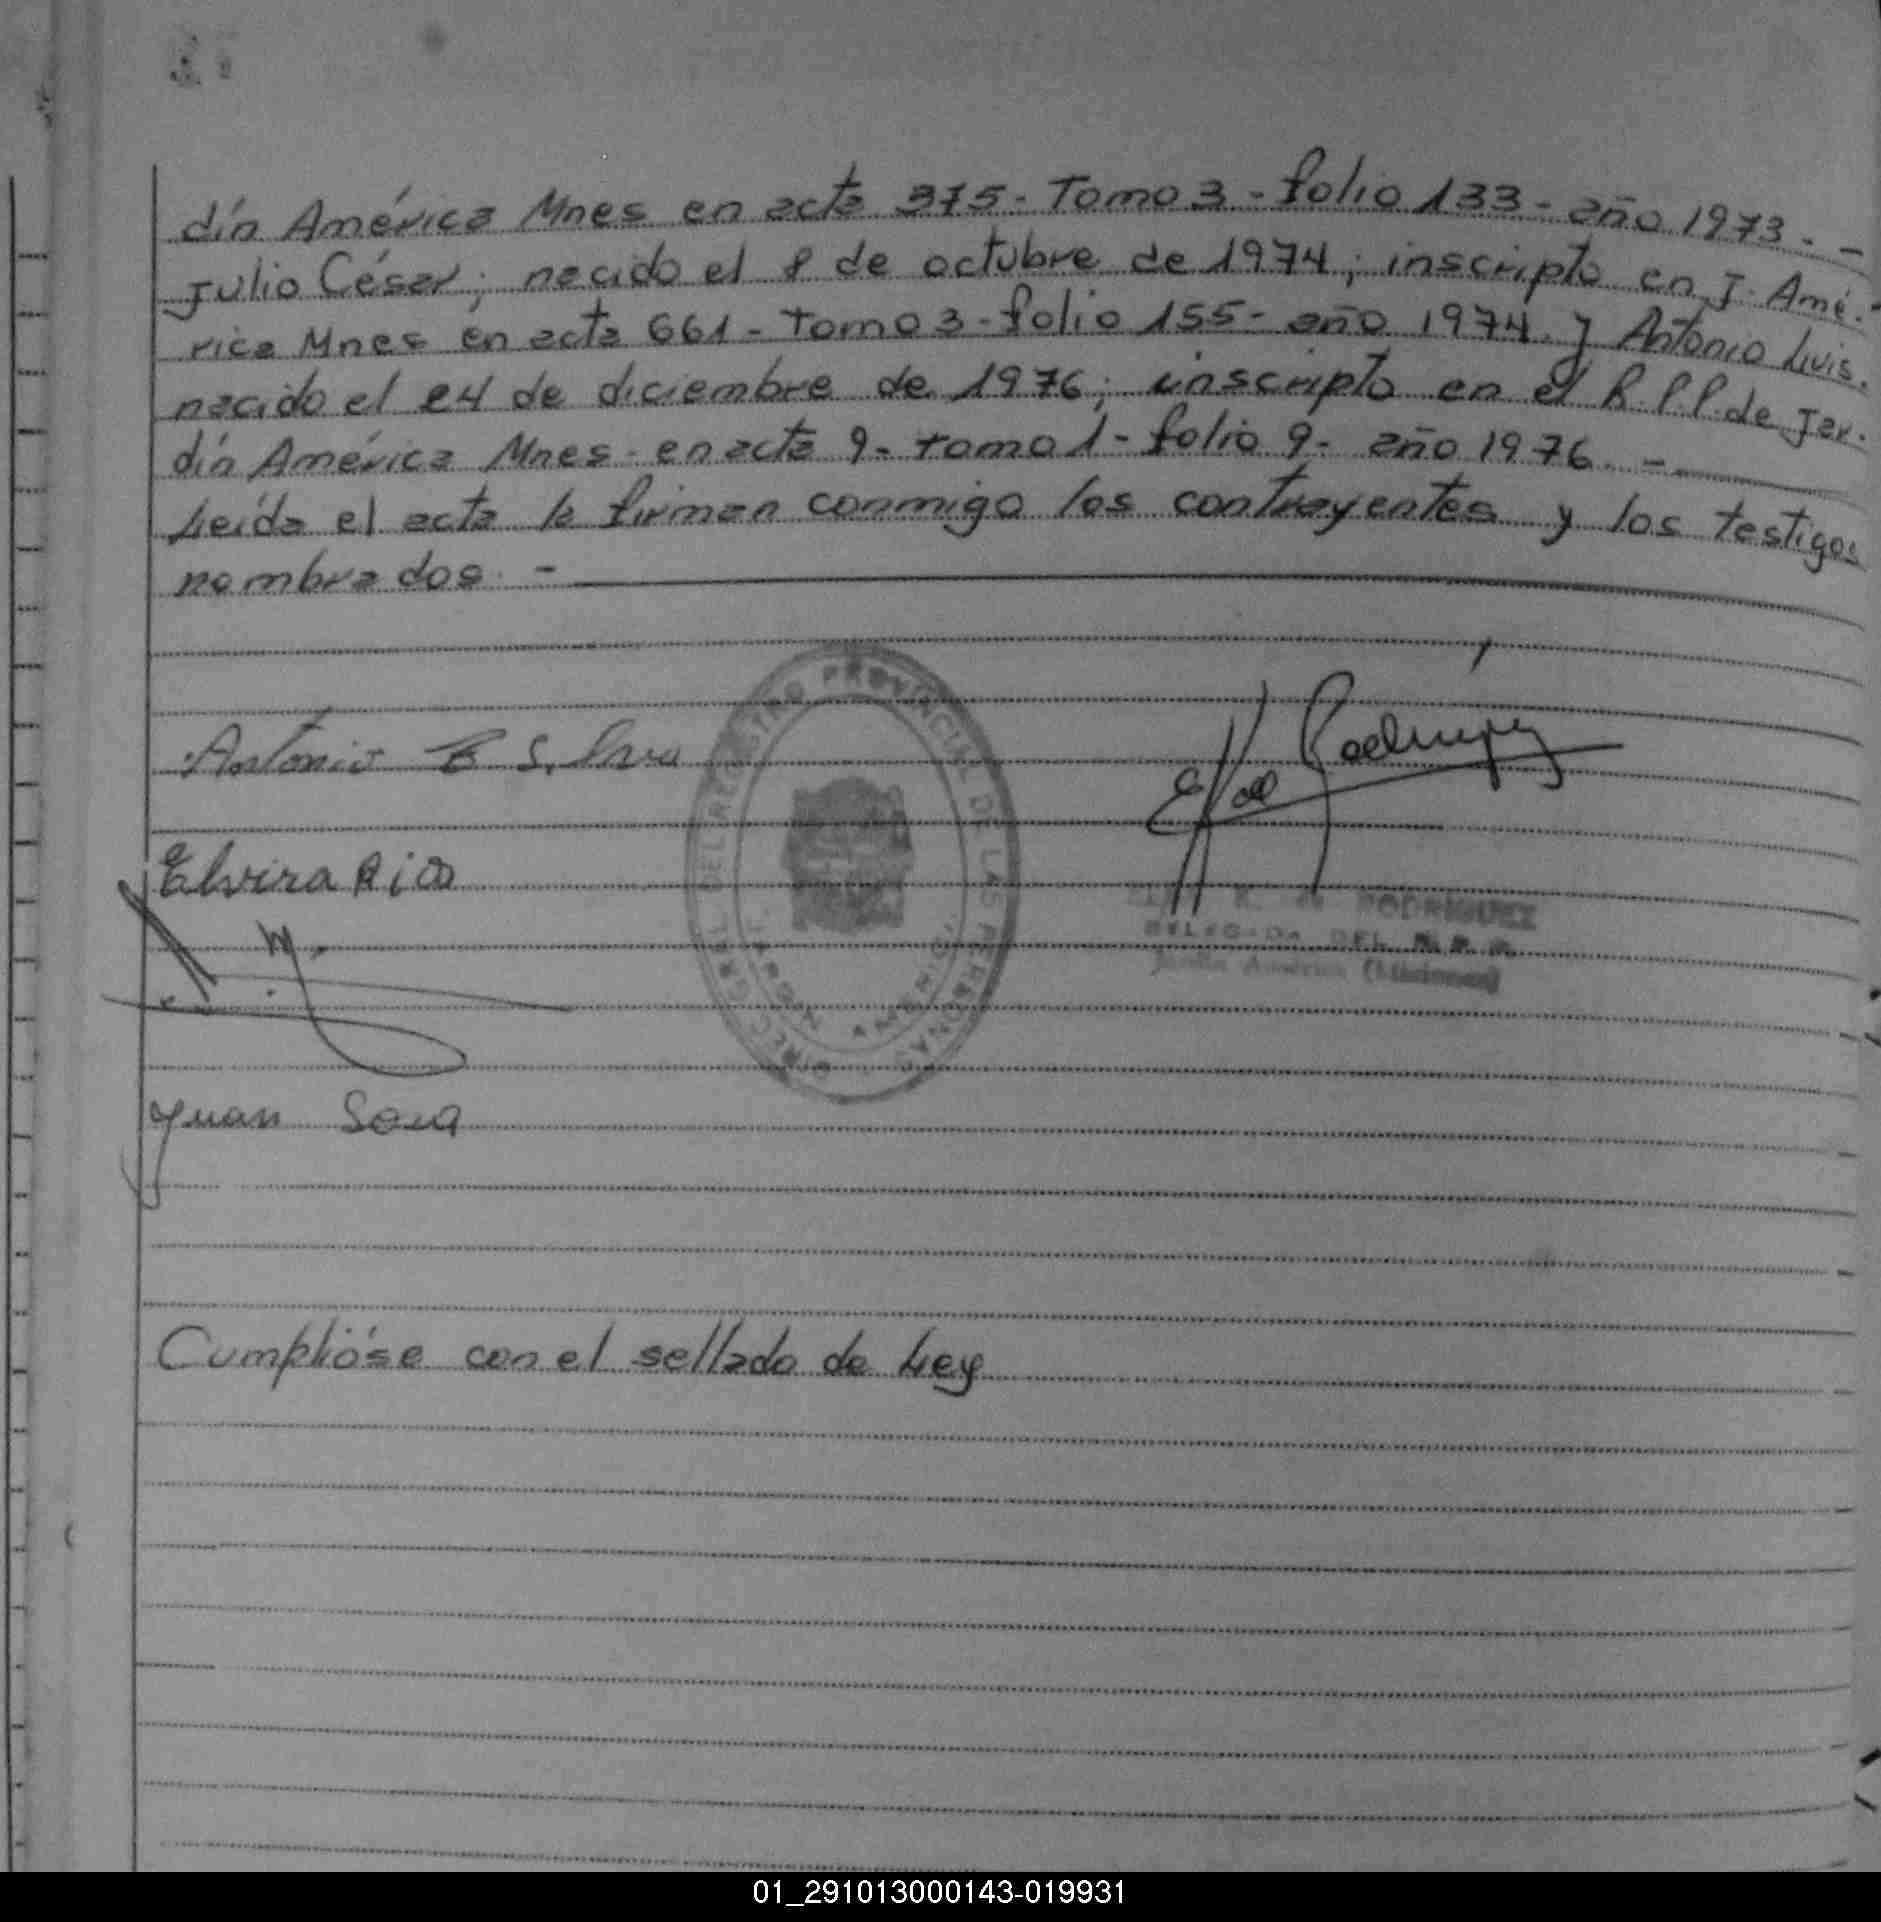 dín América Mnes en acta 375 - Tomo 3 - folio 133 - año 1973. -
Julio César; nacido el 8 de octubre de 1974; inscripto en J. Amé-
rica Mnes en acta 661 - tomo 3 - folio 155 - año 1974 y Antonio Luis.
nacido el 24 de diciembre de 1976; inscripto en el R.P.P. de Jar.
dín América Mnes - en acta 9 - tomo 1 - folio 9 - año 1976. -
Leída el acta la firman conmigo los contrayentes y los testigos
nombrados. -
Antonio
Rodríguez
Elvira Rios
DIREC. GRAL. DEL REGISTRO PROVINCIAL DE LAS PERSONAS
R. de RODRIGUEZ
DELEGADA DEL R. P. P.
Jardín América (Misiones)
Juan
Cumplióse con el sellado de Ley
01_291013000143-019931